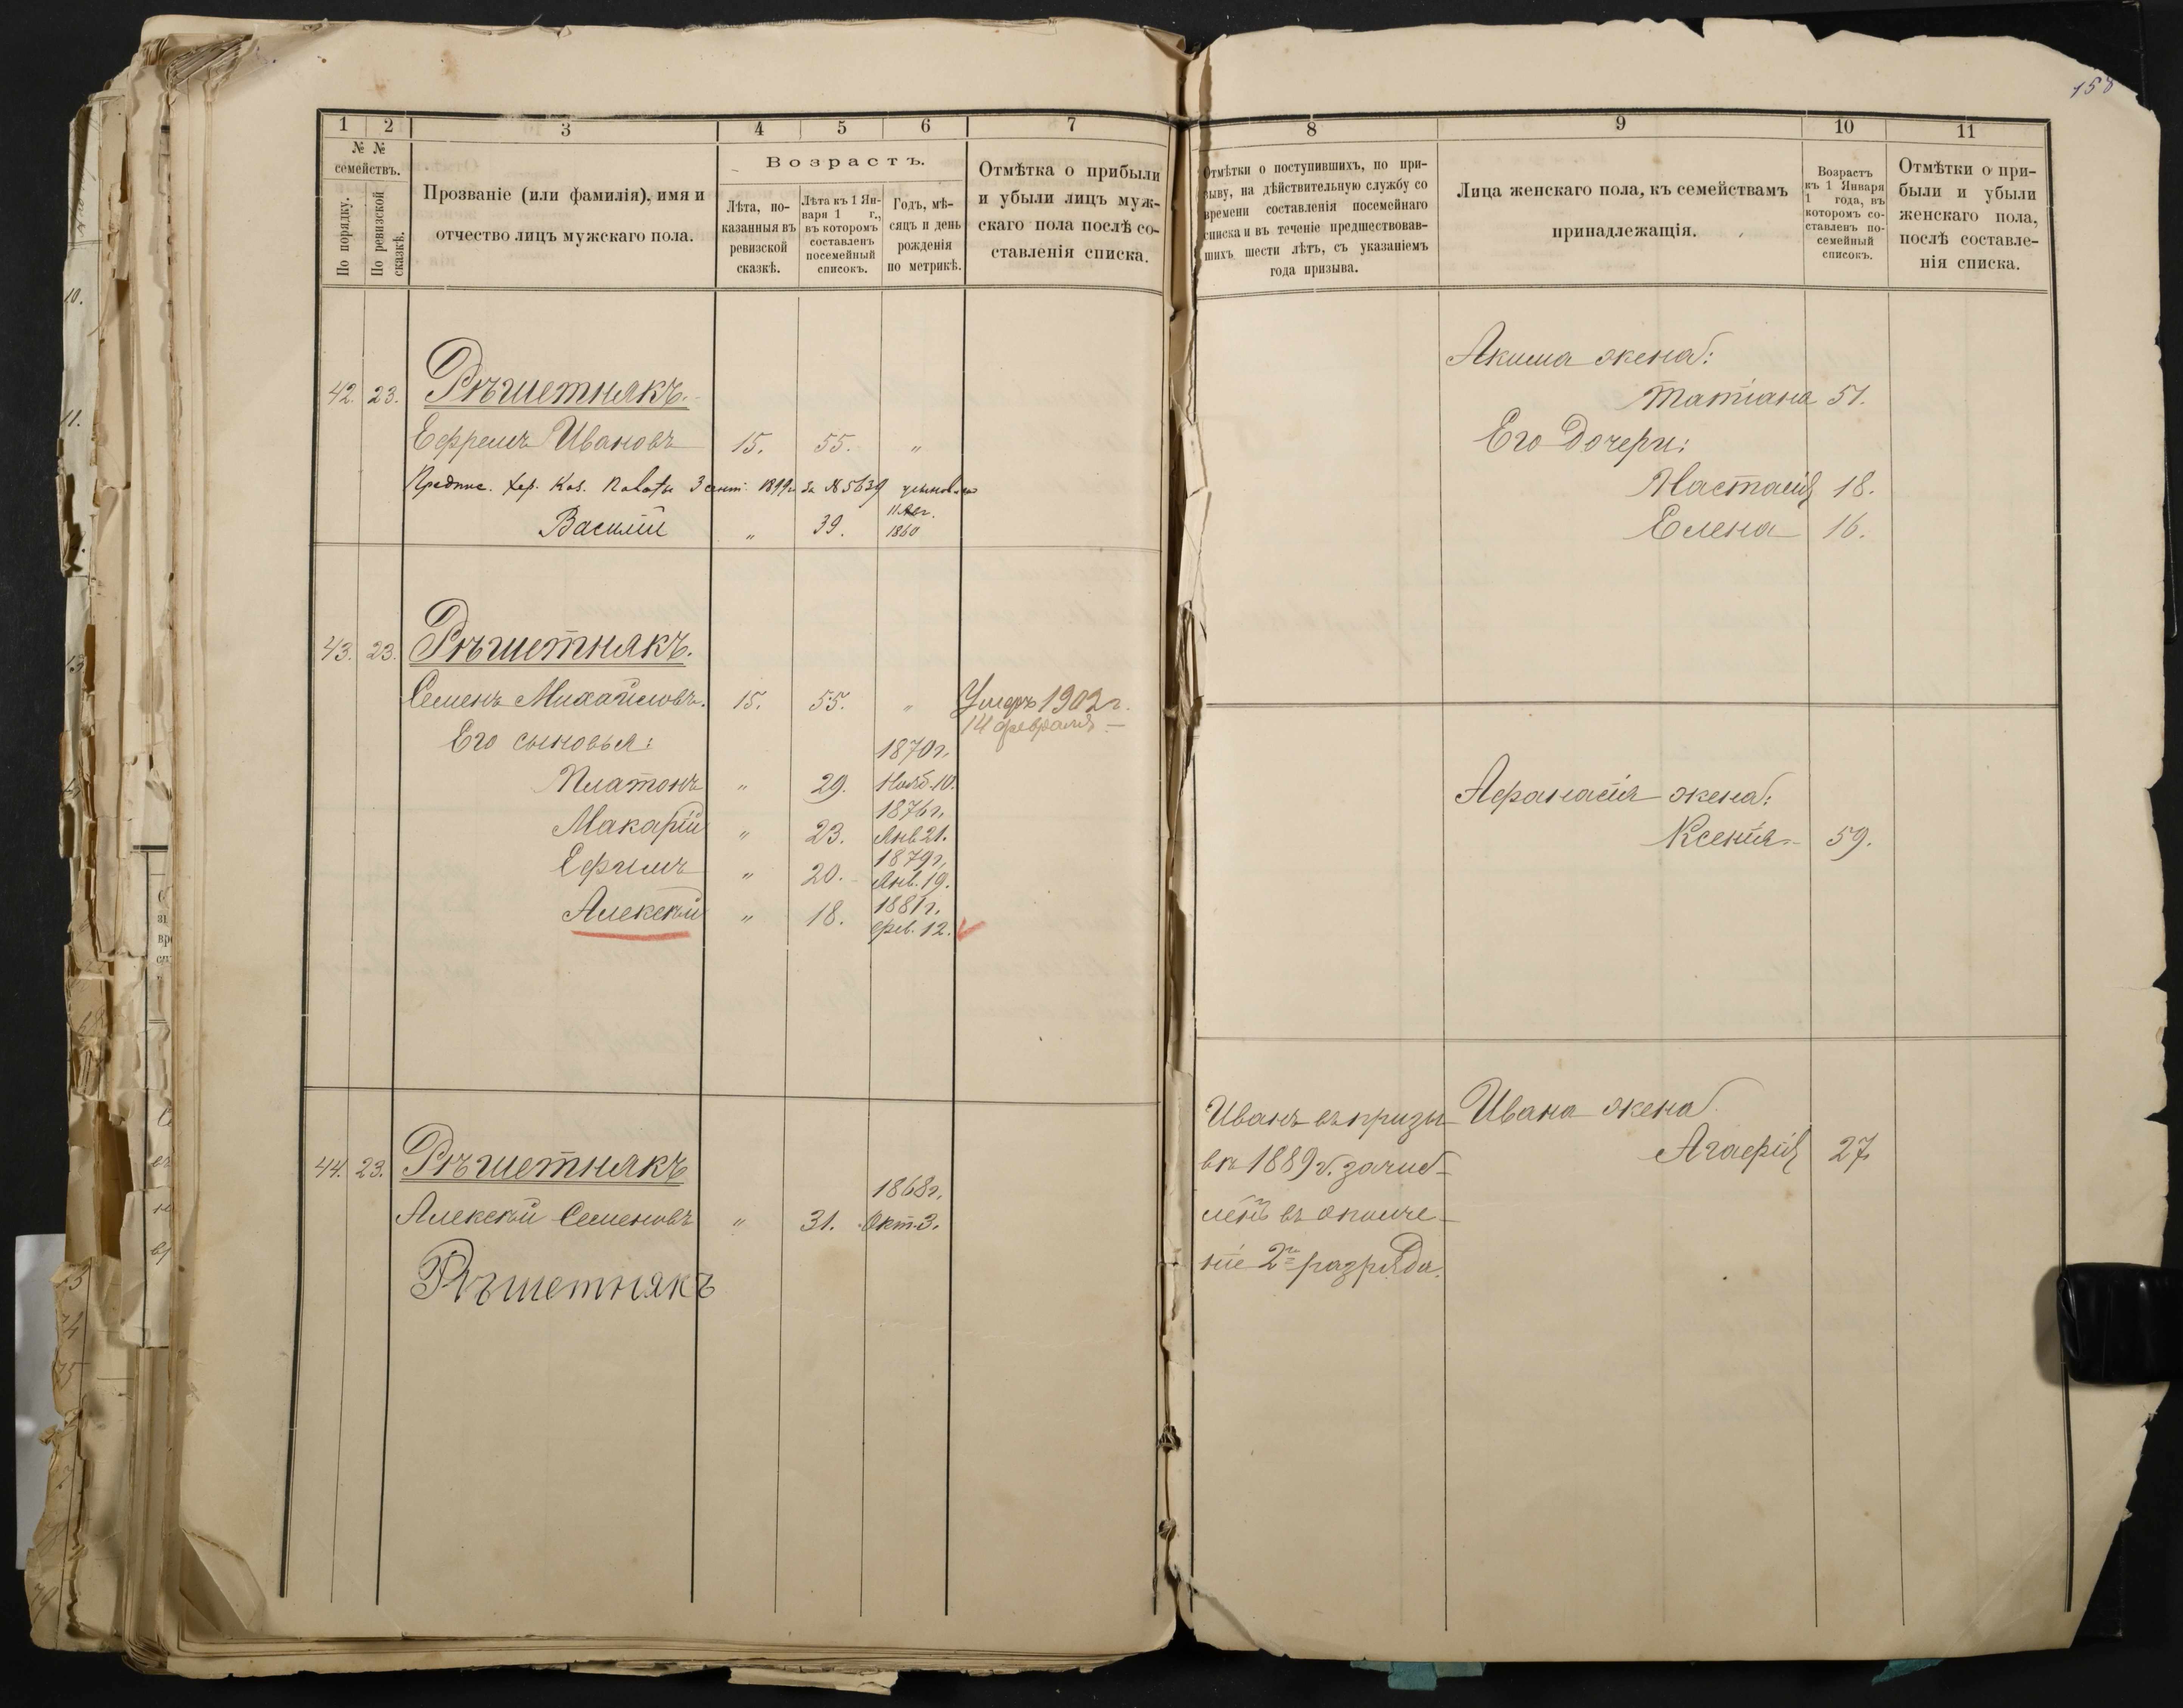 1
2
3
4
5
6
7
№ №
семействъ.
По порядку.
По ревизской сказкѣ.
Прозваніе (или фамилія), имя и
отчество лицъ мужскаго пола.
Возрастъ.
Лѣта, по-
казанныя въ
ревизской
сказкѣ.
Лѣта къ 1 Ян-
варя 1 г.,
въ которомъ
составленъ
посемейный
списокъ.
Годъ, мѣ-
сяцъ и день
рожденія
по метрикѣ.
Отмѣтка о прибыли
и убыли лицъ муж-
скаго пола послѣ со-
ставленія списка.
42. 23. Рѣшетнякъ.
Ефремъ Ивановъ 15. 55. „
Предпис. Хер. Каз. Палаты 3 сент. 1899 г за № 5639
Василій „ 39. 11 Авг. 1860
43. 23. Рѣшетнякъ.
Семенъ Михайловъ. 15. 55. „ Умеръ 1902 г.
14 февраля
Его сыновья:
Платонъ „ 29. 1870 г. Нояб. 10.
Макарій „ 23. 1876 г. Янв. 21.
Ефимъ „ 20. 1879 г. Янв. 19.
Алексѣй „ 18. 1881 г. Фев. 12.
44. 23. Рѣшетнякъ
Алексѣй Семеновъ „ 31. 1868 г. Окт. 3.
Рѣшетнякъ
158
8
9
10
11
Отмѣтки о поступившихъ, по при-
зыву, на дѣйствительную службу со
времени составленія посемейнаго
списка и въ теченіе предшествовав-
шихъ шести лѣтъ, съ указаніемъ
года призыва.
Лица женскаго пола, къ семействамъ
принадлежащія.
Возрастъ
къ 1 Января
1 года, въ
которомъ со-
ставленъ по-
семейный
списокъ.
Отмѣтки о при-
были и убыли
женскаго пола,
послѣ составле-
нія списка.
Акима жена:
Татіана 51.
Его дочери:
Настасія 18.
Елена 16.
Афанасія жена:
Ксенія 59.
Иванъ въ призы-
въ 1889 г. зачис-
ленъ въ ополче-
ніе 2го разряда.
Ивана жена
Агафія 27.